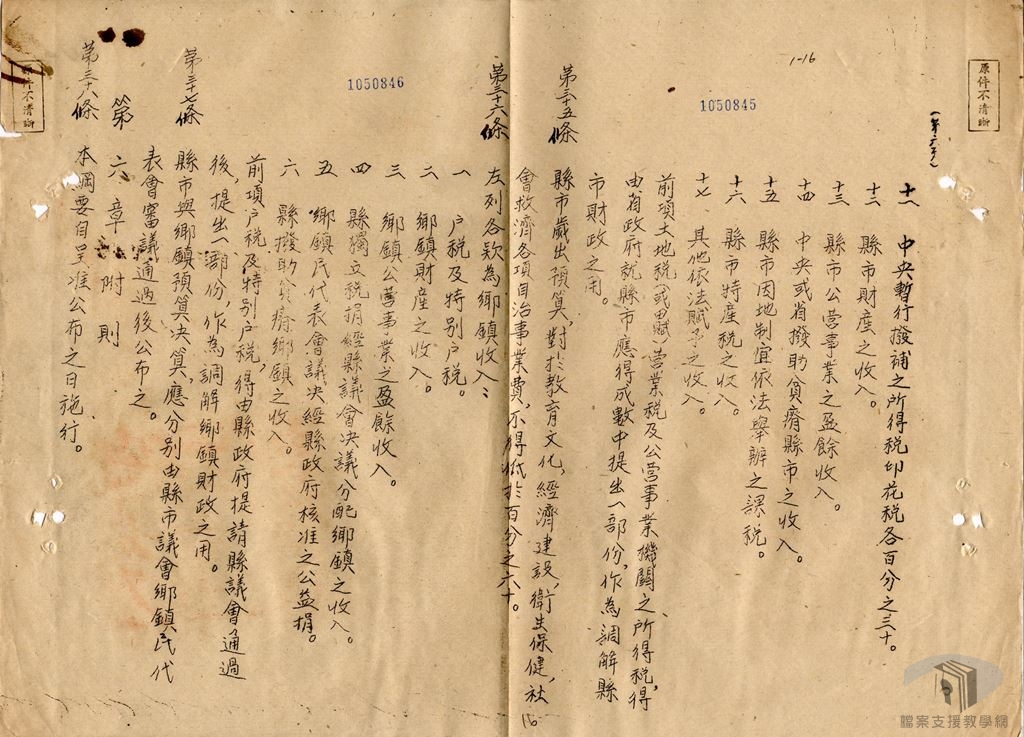 原件不清晰
1-16
1050845
十二 中央暫行撥補之所得稅印花稅各百分之三十。
十三 縣市財產之收入。
十三 縣市公營事業之盈餘收入。
十四 中央或省撥助貧瘠縣市之收入。
十五 縣市因地制宜依法舉辦之課稅。
十六 縣市特產稅之收入。
十七 其他依法賦予之收入。
前項土地稅(或田賦)營業稅及公營事業機關之所得稅,得
由省政府就縣市應得成數中提出一部份,作為調解縣
市財政之用。
第三十五條 縣市歲出預算,對於教育文化,經濟建設,衛生保健,社
會救濟各項自治事業費,不得低於百分之六十。
16
第三十六條 左列各款為鄉鎮收入:
一 戶稅及特別戶稅。
二 鄉鎮財產之收入。
三 鄉鎮公營事業之盈餘收入。
四 縣獨立稅捐經縣議會決議分配鄉鎮之收入。
五 鄉鎮民代表會議決經縣政府核准之公益捐。
六 縣撥助貧瘠鄉鎮之收入。
前項戶稅及特別戶稅,得由縣政府提請縣議會通過
後,提出一部份,作為調解鄉鎮財政之用。
1050846
第三十七條 縣市與鄉鎮預算決算,應分別由縣市議會鄉鎮民代
表會審議通過後公布之。
第六章 附則
第三十八條 本綱要自呈准公布之日施行。
原件不清晰
檔案支援教學網